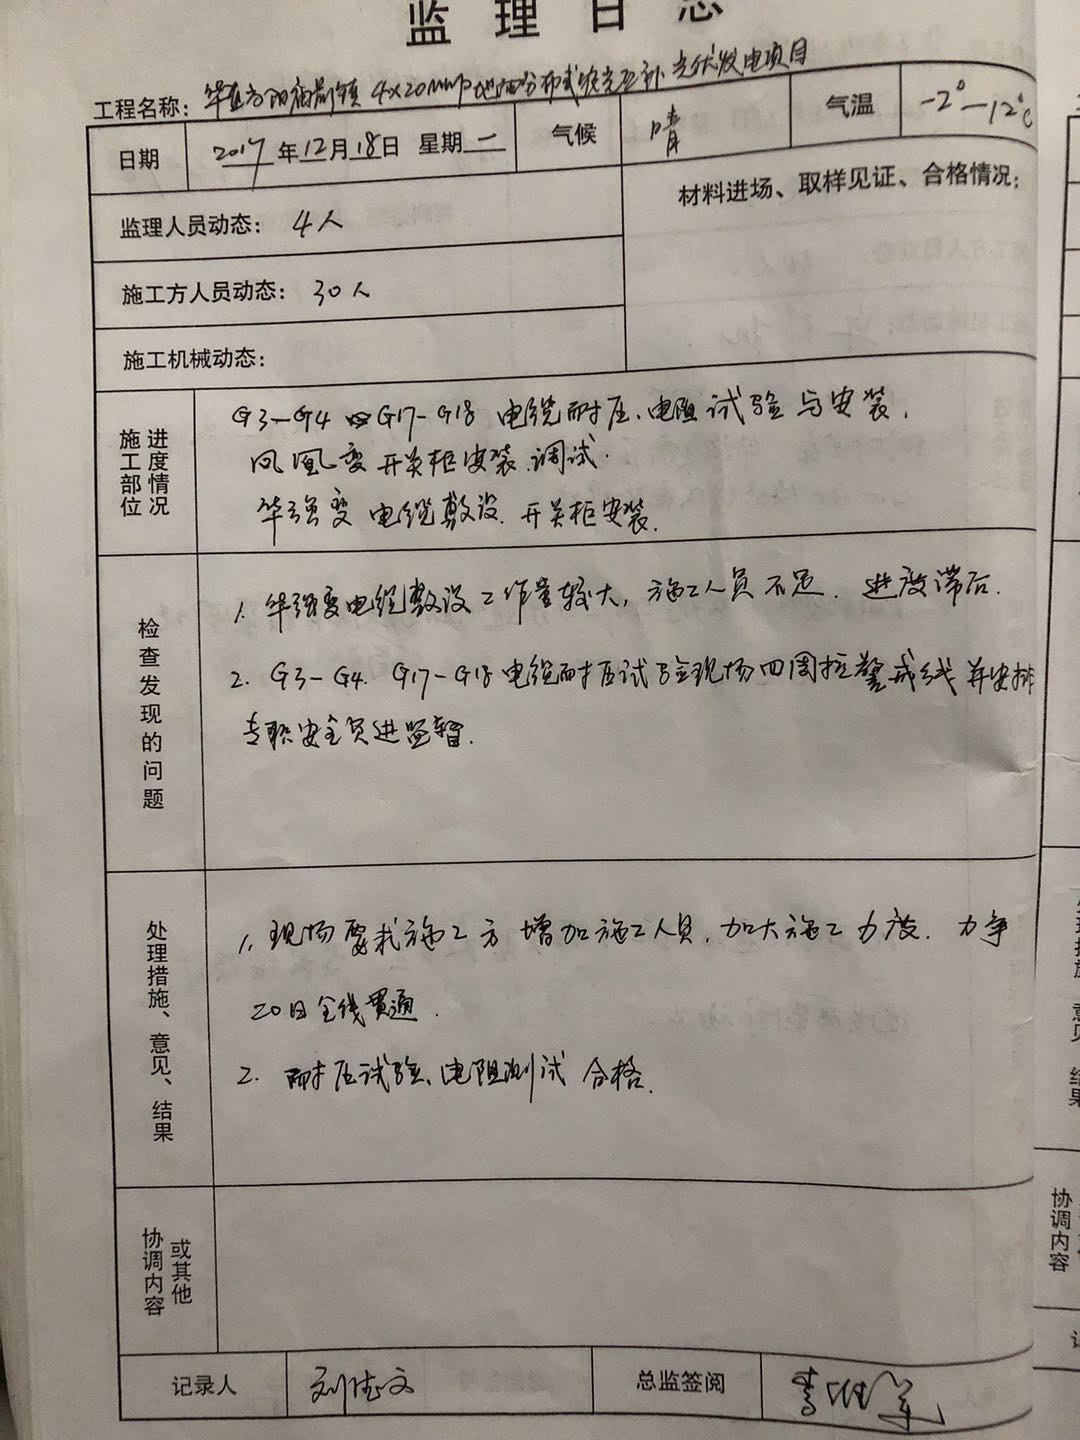 监理日志
工程名称: 4×20MWp地面分布式 光伏发电项目
日期 2017年12月18日 星期一 气候 晴 气温 -2°—12°C
材料进场、取样见证、合格情况:
监理人员动态: 4人
施工方人员动态: 30人
施工机械动态:
施工部位 进度情况
G3-G4 G17-G18 电缆耐压、电阻试验与安装,
凤凰变开关柜安装、调试.
华强变电缆敷设、开关柜安装.
检查发现的问题
1. 华强变电缆敷设工作量较大, 施工人员不足. 进度滞后.
2. G3-G4. G17-G18电缆耐压试验现场四周拉警戒线并安排
专职安全员进监督.
处理措施、意见、结果
1. 现场要求施工方增加施工人员, 加大施工力度. 力争
20日全线贯通.
2. 耐压试验、电阻测试合格.
协调内容 或其他
记录人 总监签阅
协调内容